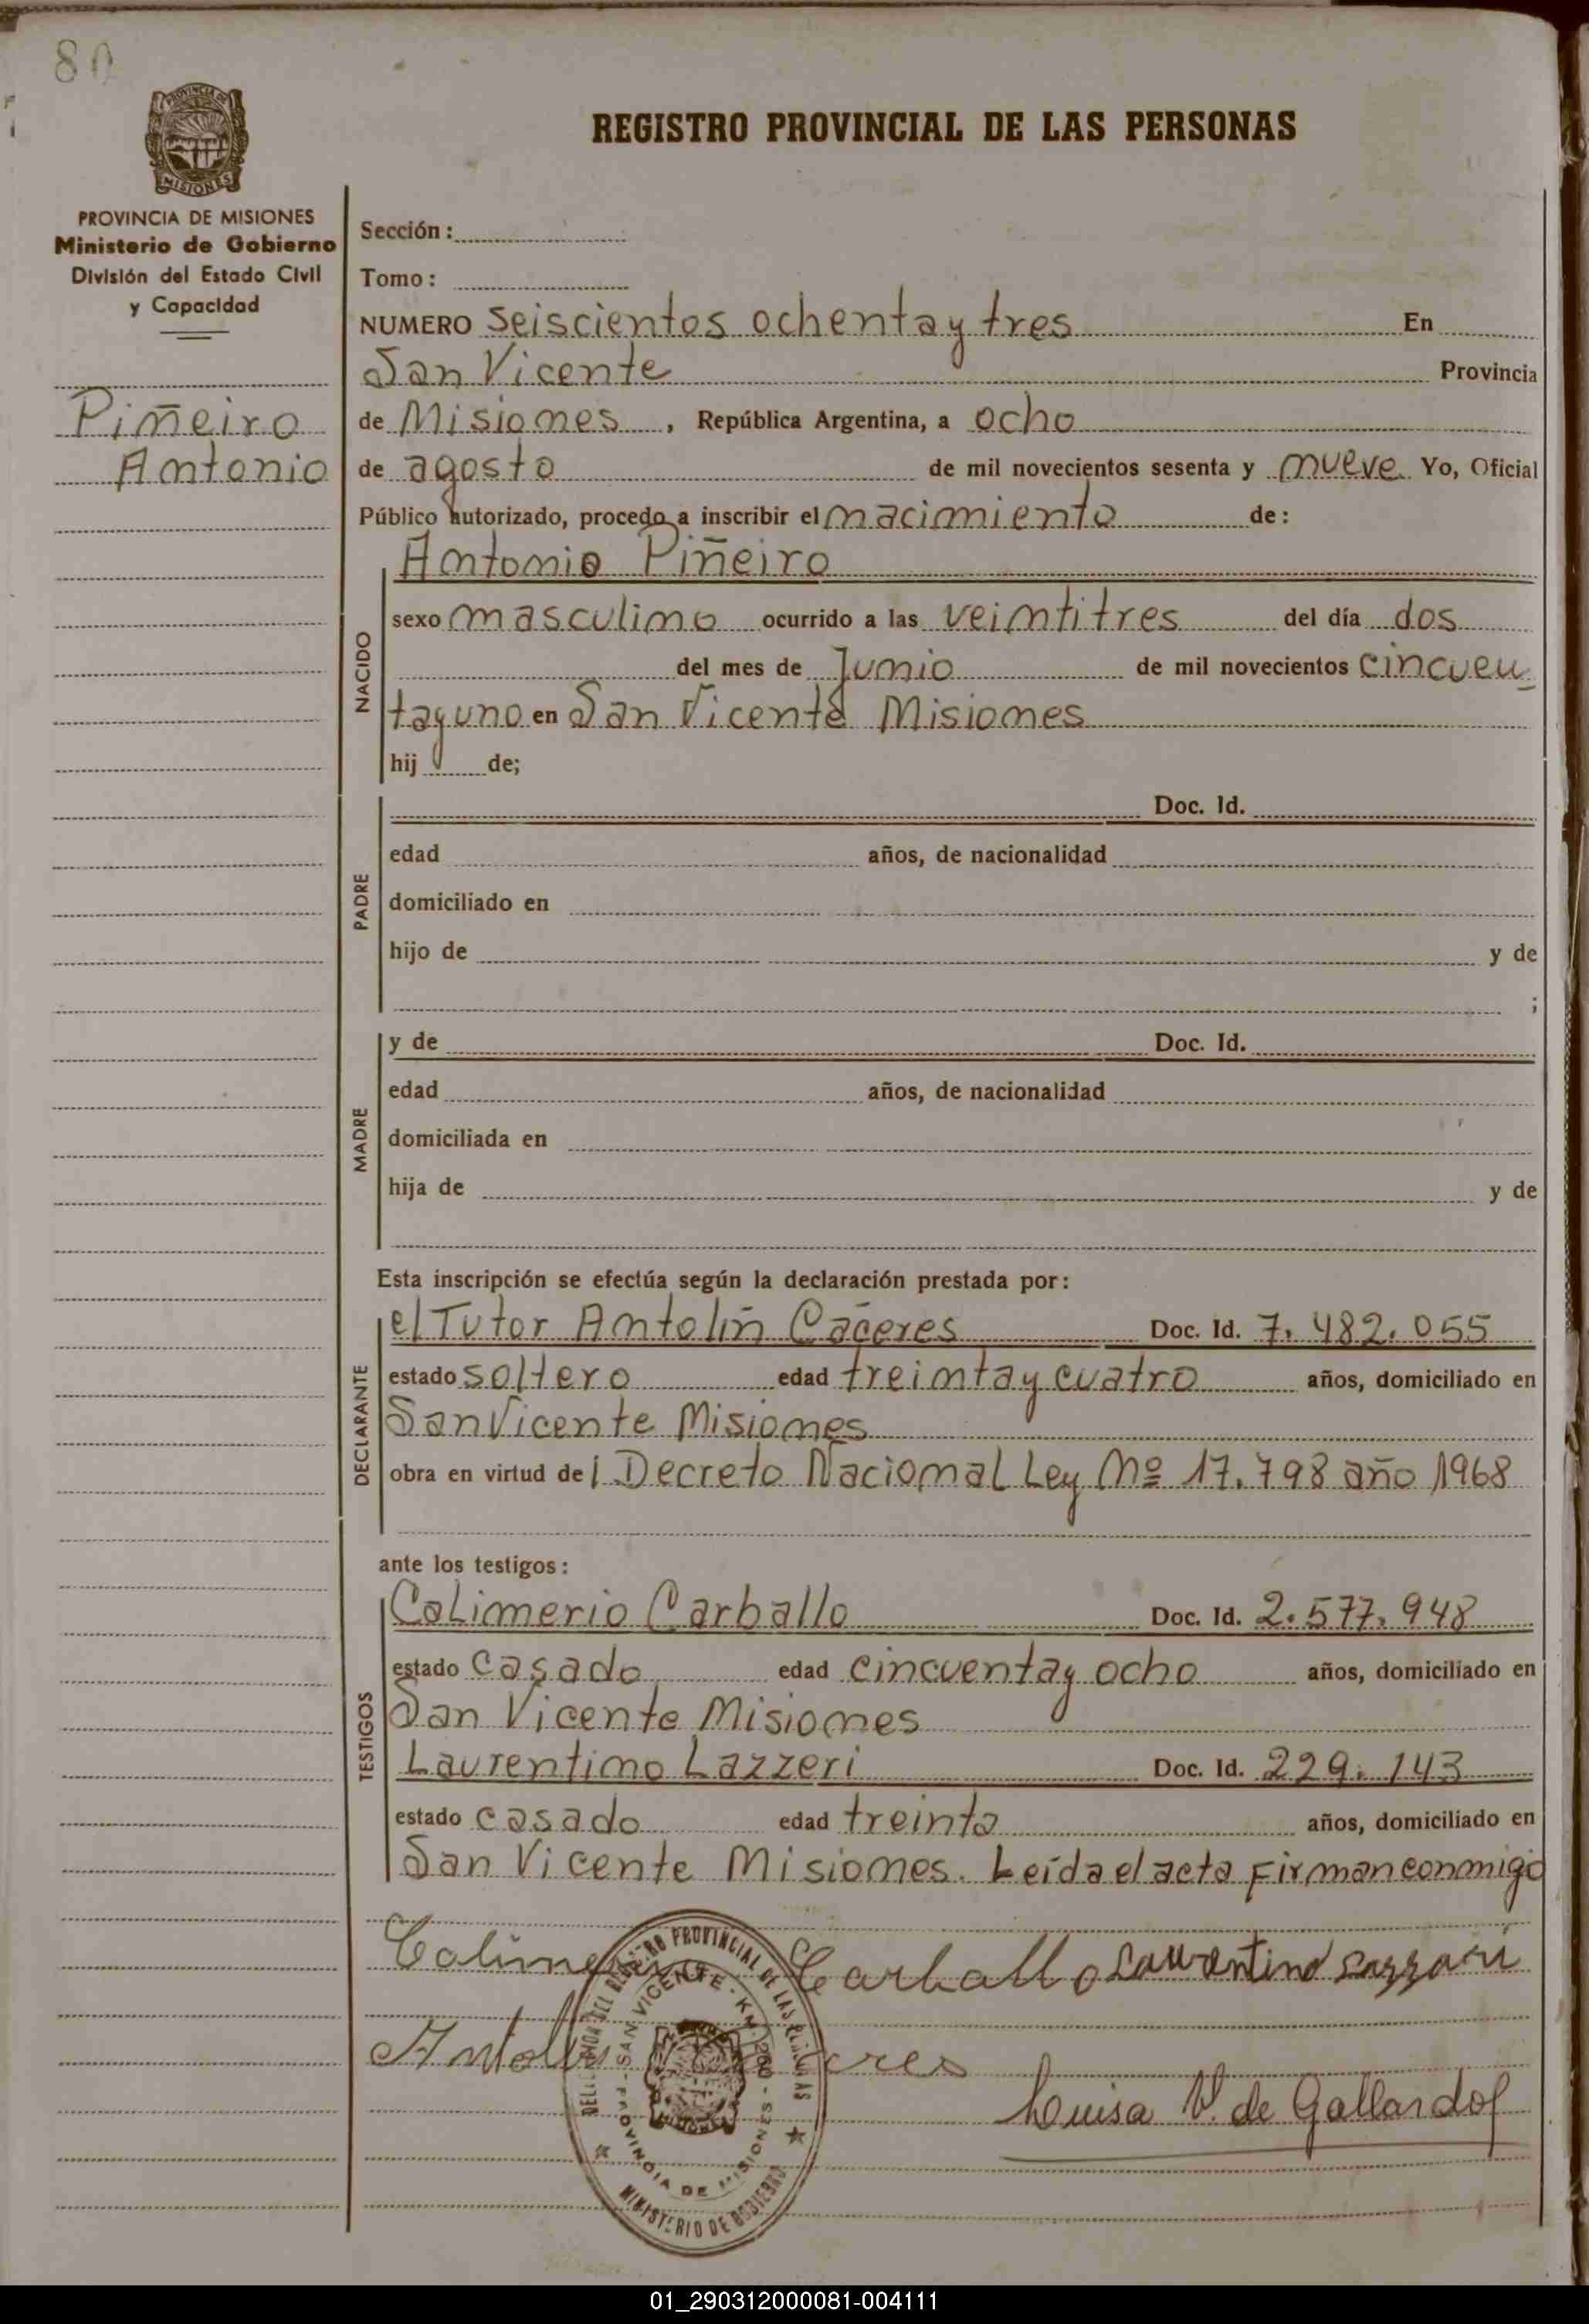 80
PROVINCIA DE
MISIONES
REGISTRO PROVINCIAL DE LAS PERSONAS
PROVINCIA DE MISIONES
Ministerio de Gobierno
División del Estado Civil
y Capacidad
Piñeiro
Antonio
Sección :
Tomo :
NUMERO seiscientos ochenta y tres En
San Vicente Provincia
de Misiones , República Argentina, a ocho
de agosto de mil novecientos sesenta y nueve Yo, Oficial
Público autorizado, procedo a inscribir el nacimiento de :
Antonio Piñeiro
NACIDO
sexo masculino ocurrido a las veintitres del día dos
del mes de Junio de mil novecientos cincuen
tayuno en San Vicente Misiones
hij de;
PADRE
Doc. Id.
edad años, de nacionalidad
domiciliado en
hijo de y de
;
MADRE
y de Doc. Id.
edad años, de nacionalidad
domiciliada en
hija de y de
Esta inscripción se efectúa según la declaración prestada por :
DECLARANTE
el Tutor Antolín Cáceres Doc. Id. 7.482.055
estado soltero edad treinta y cuatro años, domiciliado en
San Vicente Misiones
obra en virtud de l Decreto Nacional Ley Nº 17.798 año 1968
ante los testigos :
TESTIGOS
Calimerio Carballo Doc. Id. 2.577.948
estado casado edad cincuenta y ocho años, domiciliado en
San Vicente Misiones
Laurentino Lazzeri Doc. Id. 229.143
estado casado edad treinta años, domiciliado en
San Vicente Misiones. Leída el acta Firman conmigo
Calimerio Carballo Laurentino Lazzari
Antolin Caceres
Luisa V. de Gallardo
DELEGACION DEL REGISTRO PROVINCIAL DE LAS PERSONAS
SAN VICENTE - KM. 1266 - PROVINCIA DE MISIONES -
MINISTERIO DE GOBIERNO
01_290312000081-004111